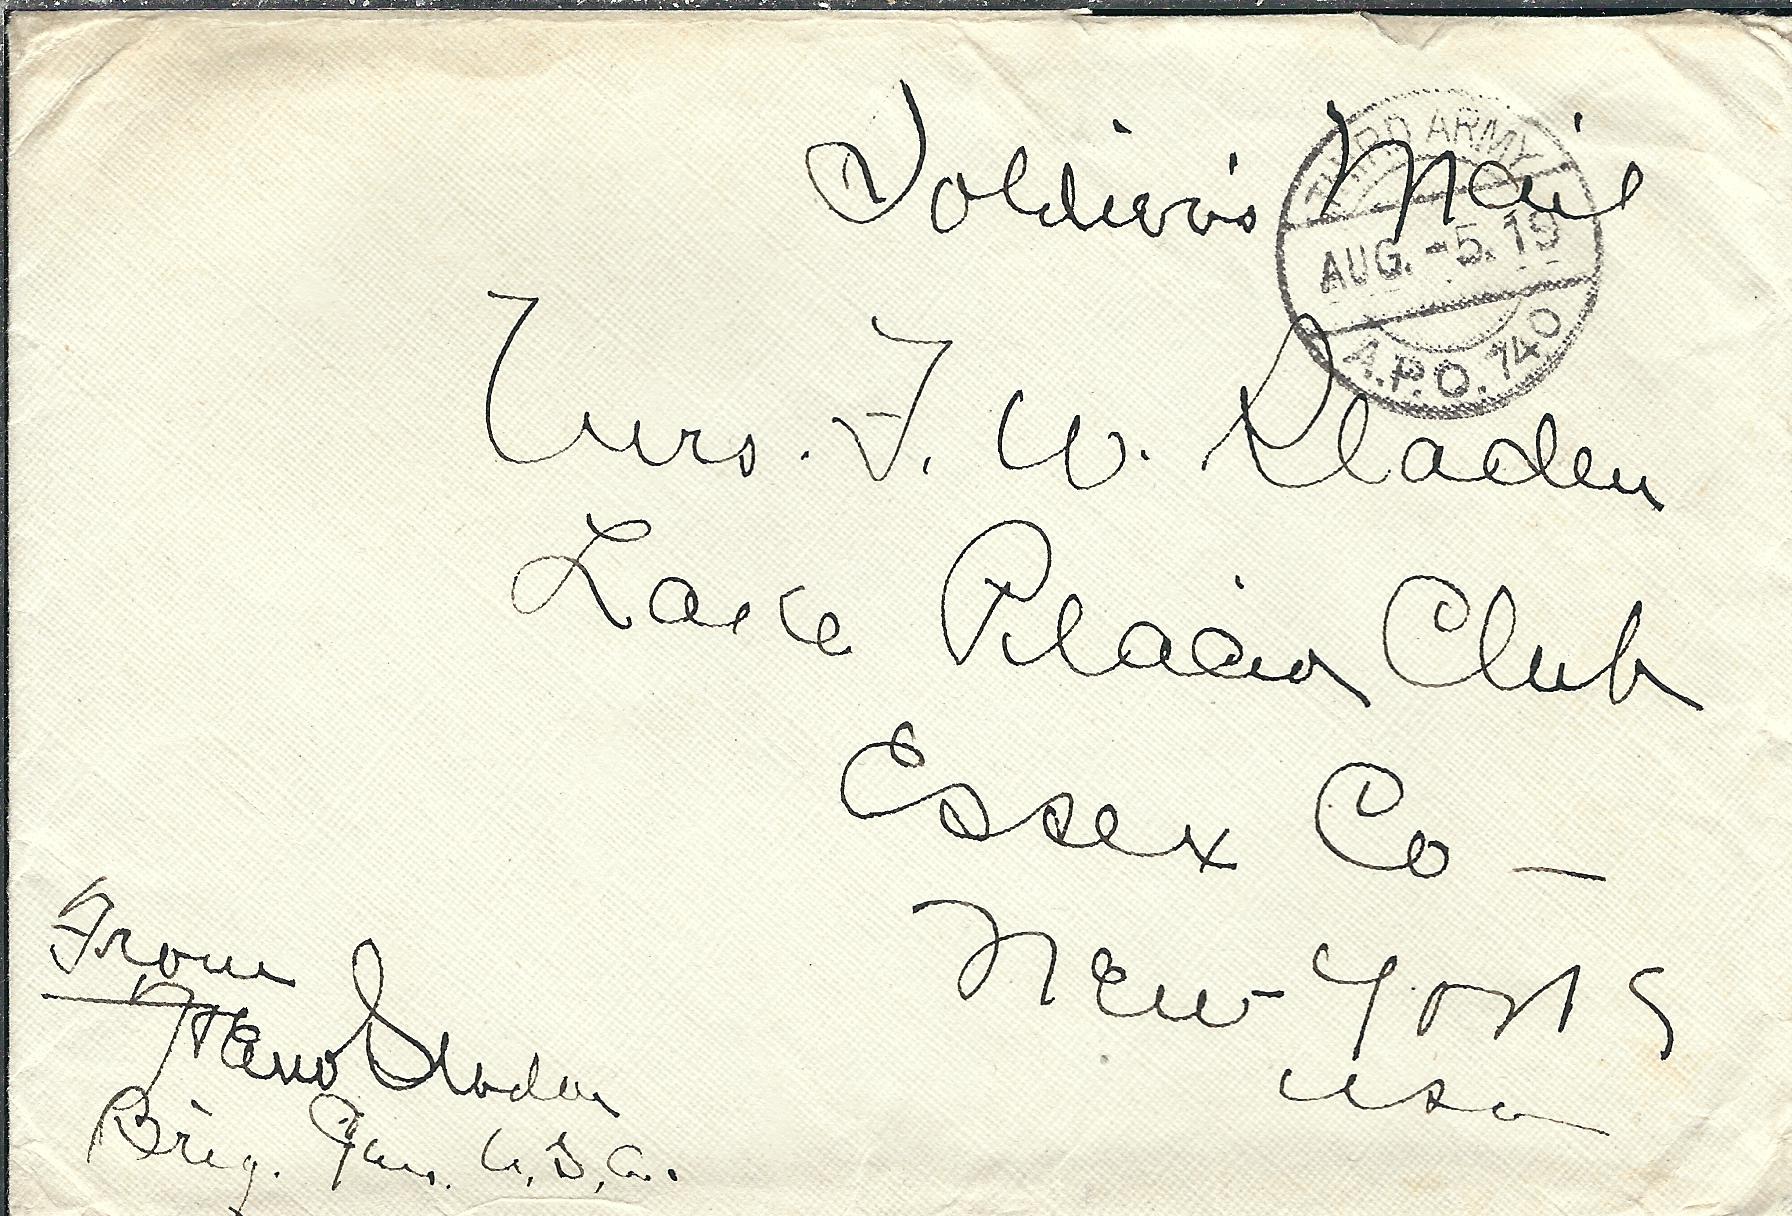 Soldier's Mail
THIRD ARMY
AUG. -5. 19
A.P.O. 740
Mrs. F. W. Sladen
Lake Placid Club
Essex Co —
New York
USA
From
Sladen
Brig. Gen. U.S.A.